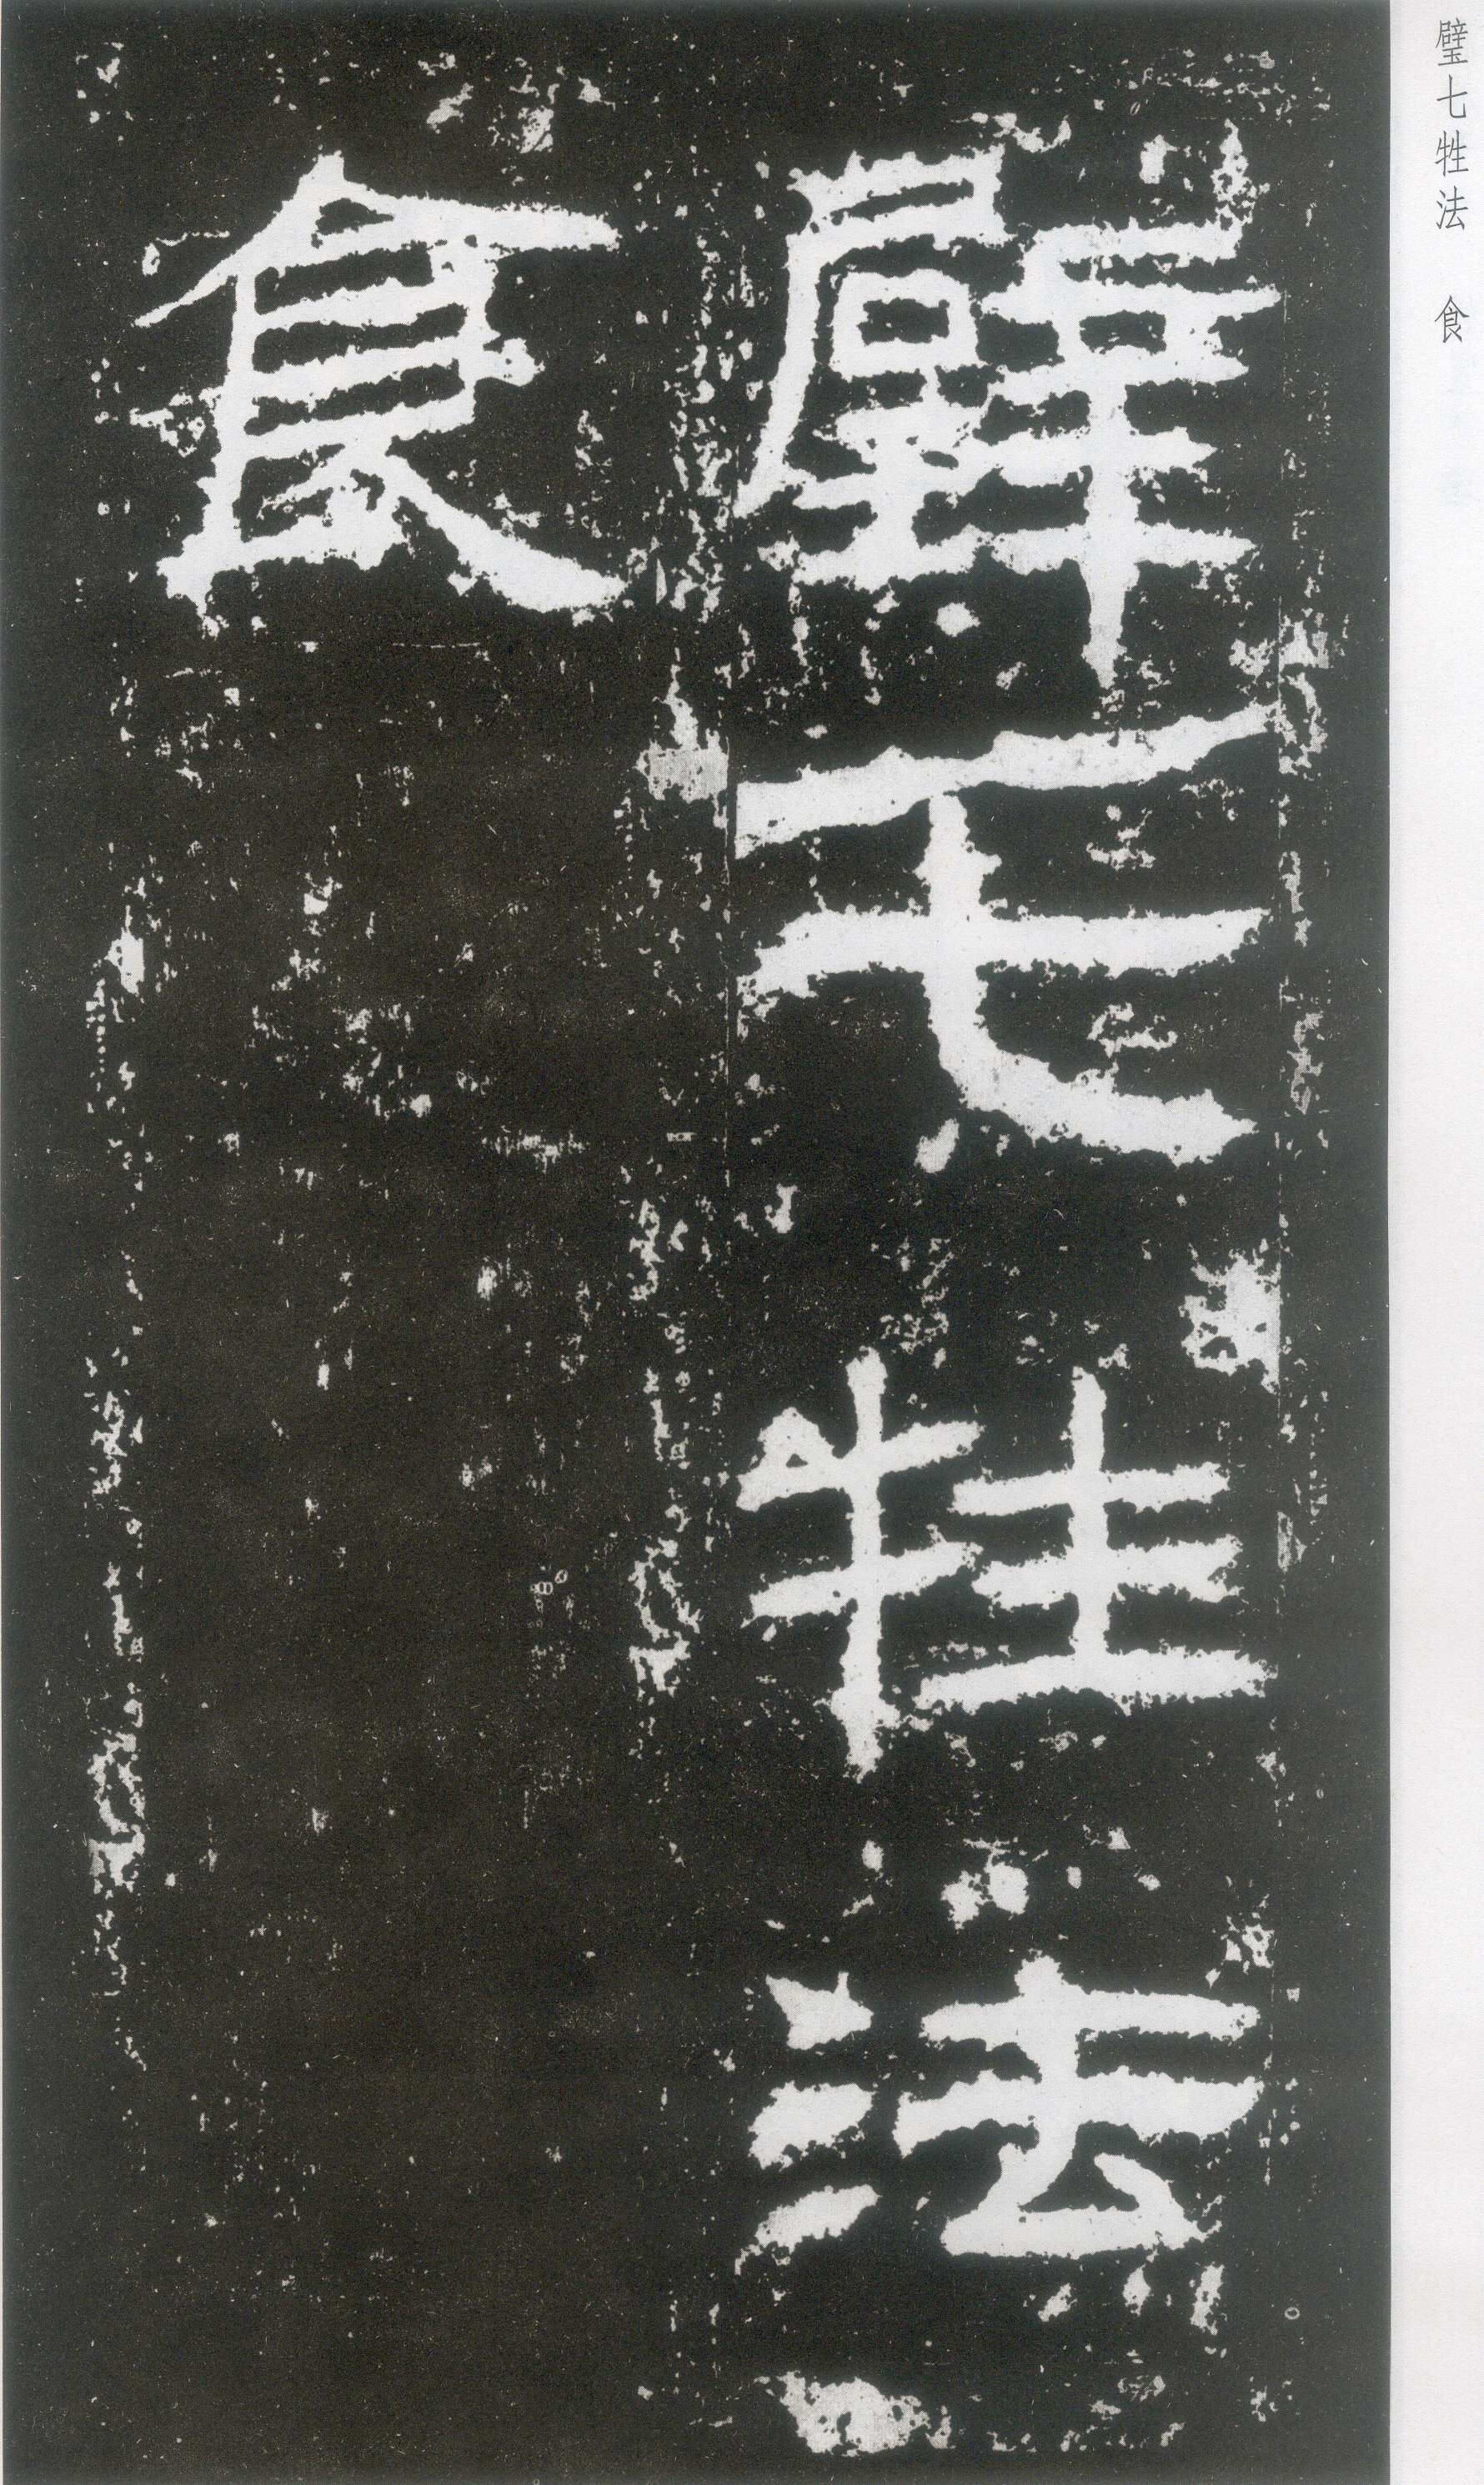 璧七牲法　食
璧七牲法
食